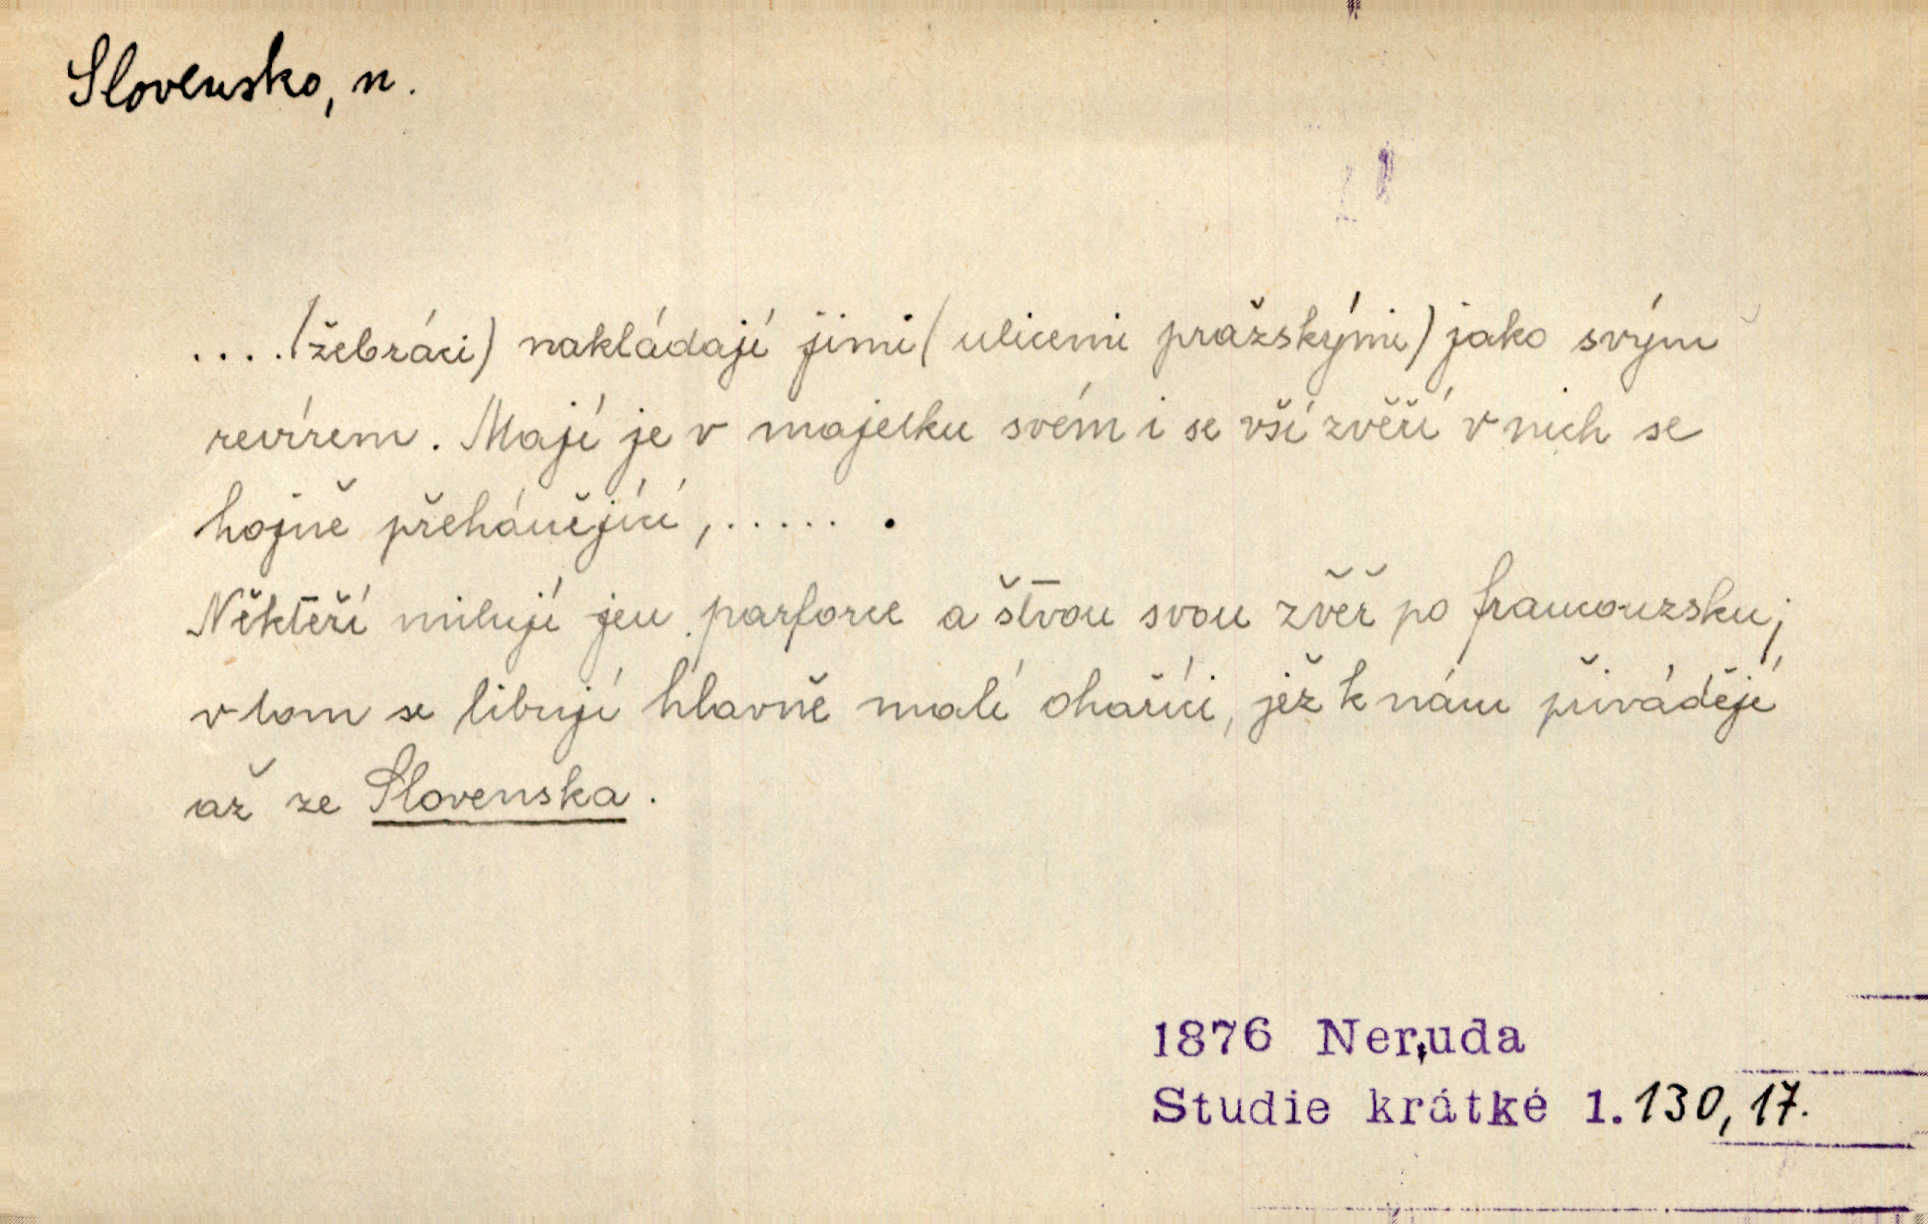 Slovensko, n.
....(žebráci) nakládají jimi (ulicemi pražskými) jako svým
revírem. Mají je v majetku svém i se vší zvěří v nich se
hojně přehánějící, ..... .
Někteří milují jen parforce a štvou svou zvěř po francouzsku;
v tom se libují hlavně malí ohaříci, jež k nám přivádějí
až ze Slovenska.
1876 Neruda
Studie krátké 1. 130, 17.